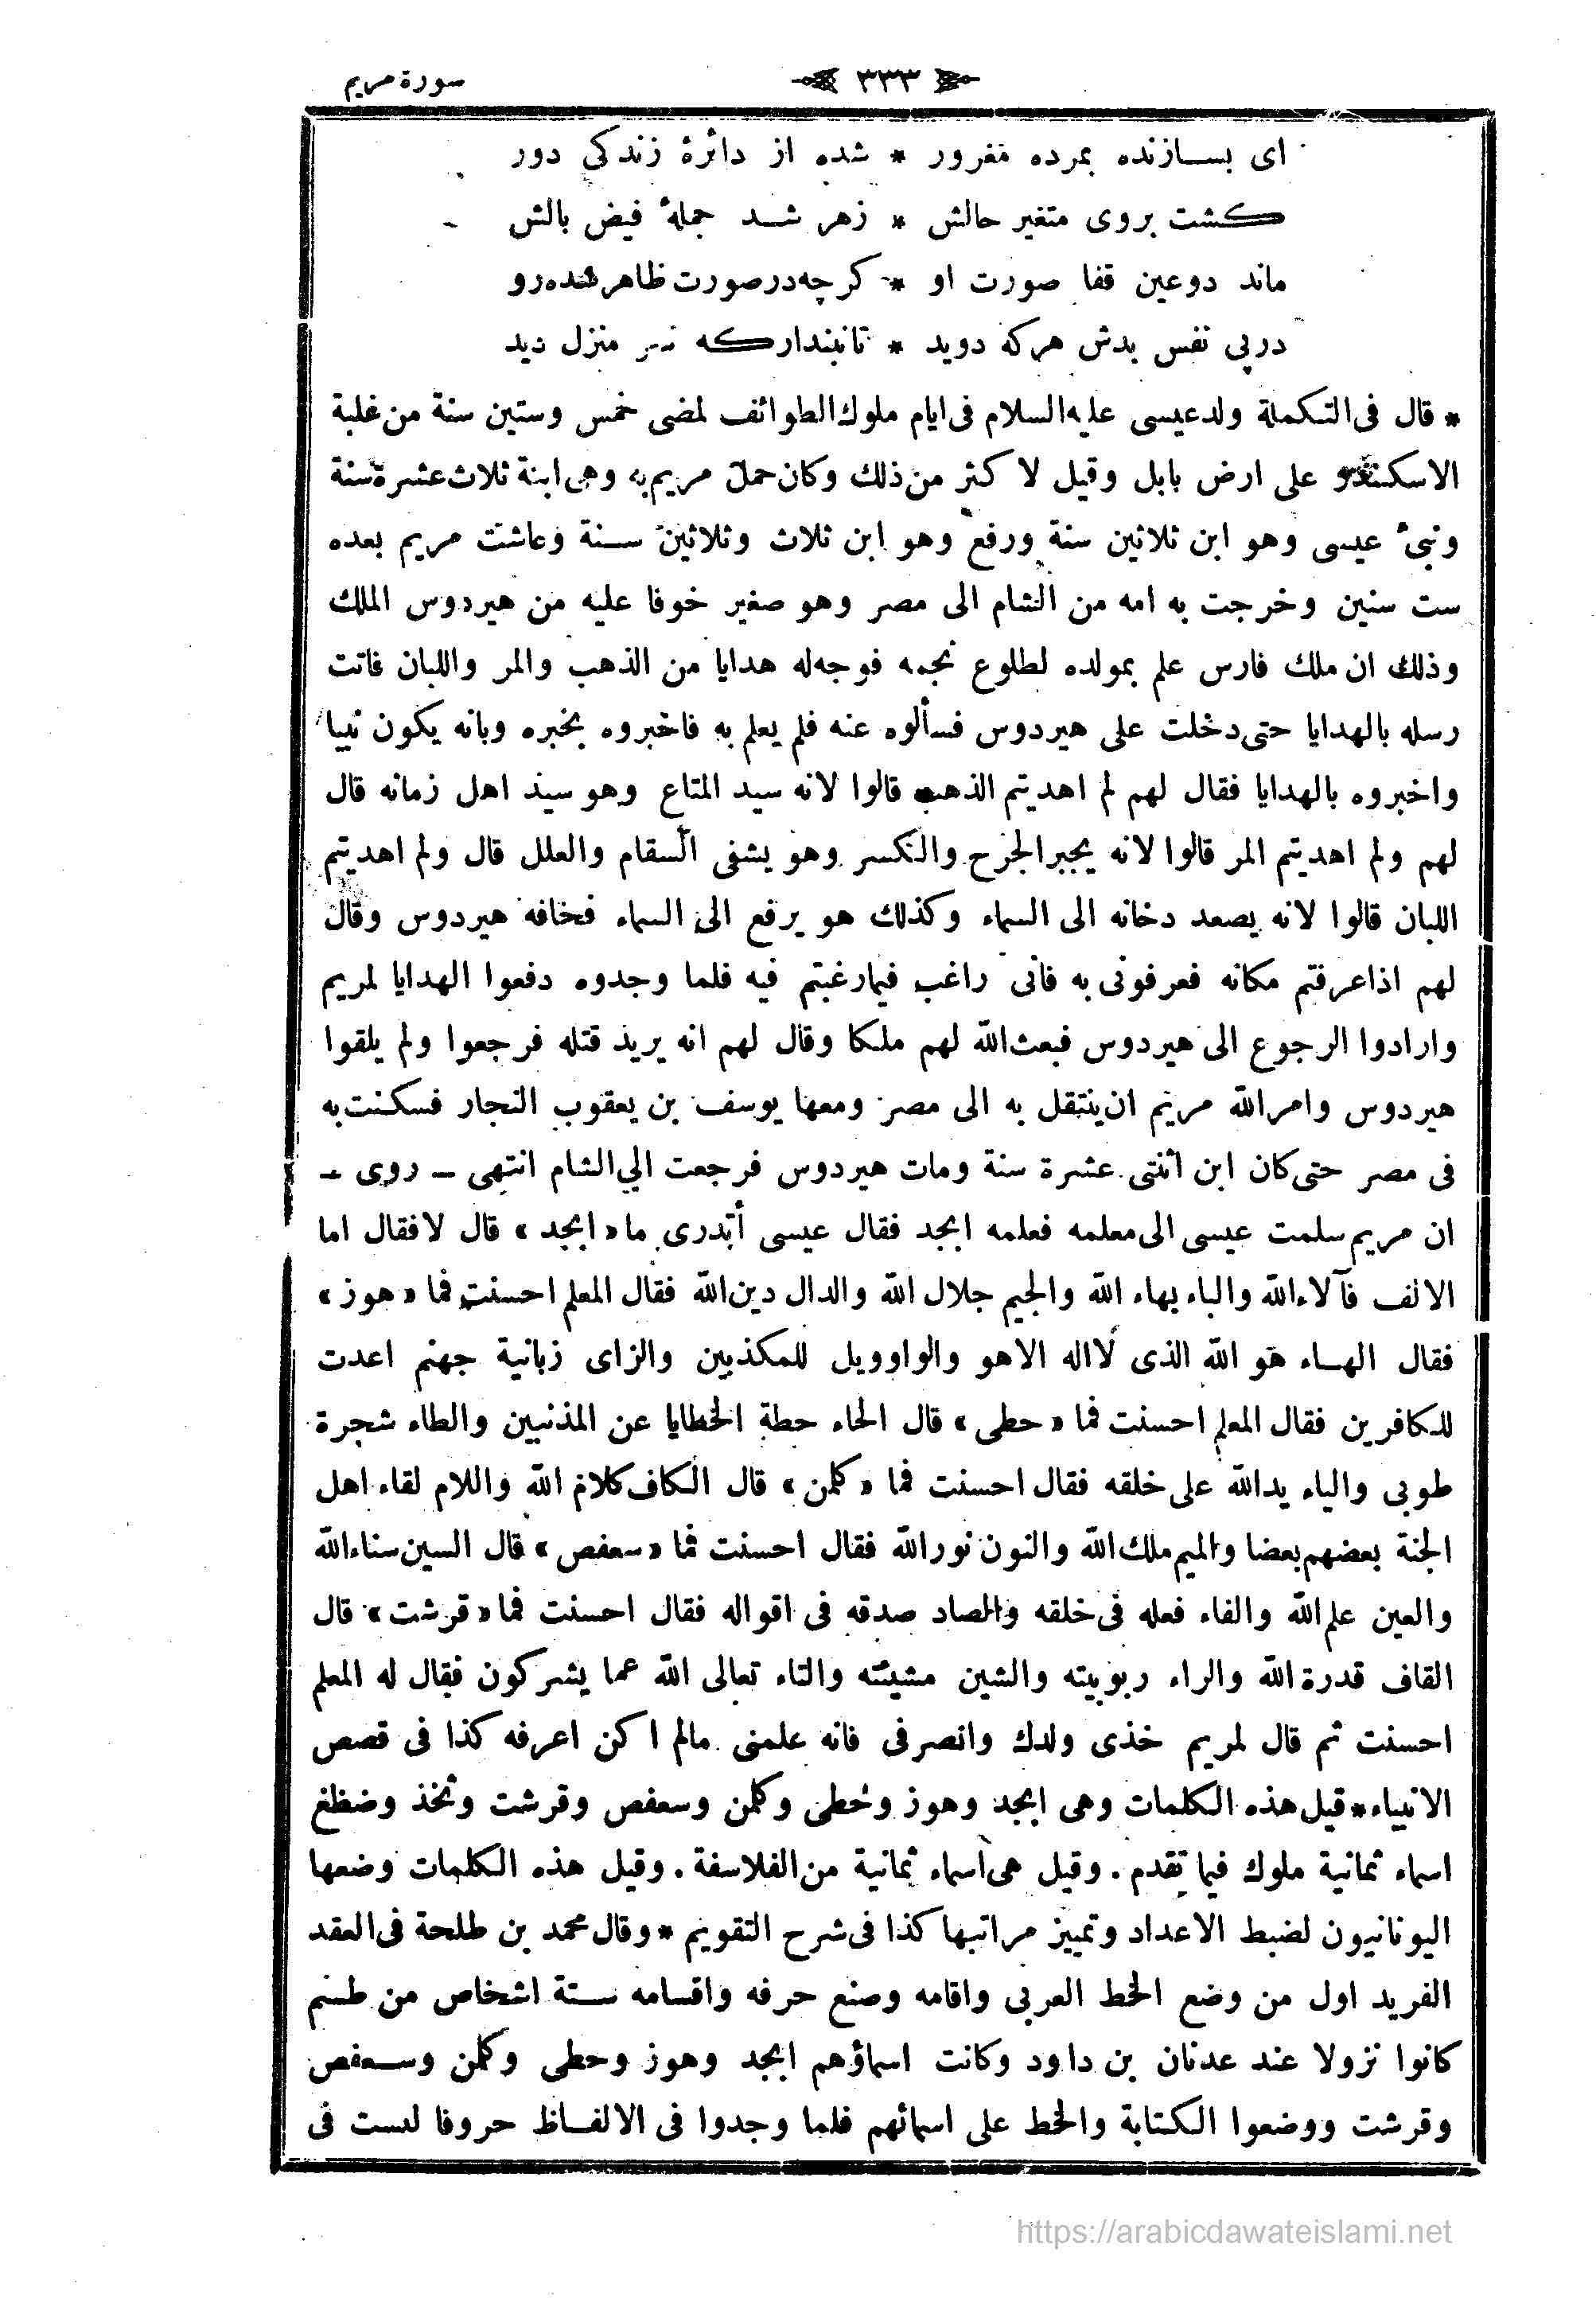 سورة مريم
٣٣٣
ای بسازنده بمرده مغرور * شده از دائرۀ زندکی دور
کشت بروی متغیر حالش * زهر شد جملۀ فیض بالش
ماند دوعین قفا صورت او * کرچه درصورت ظاهر شده رو
درپی نفس بدش هرکه دوید * تانپندارکه منزل دید
* قال فى التكملة ولد عيسى عليه السلام فى ايام ملوك الطوائف لمضى خمس وستين سنة من غلبة
الاسكندر على ارض بابل وقيل لاكثر من ذلك وكان حمل مريم به وهى ابنة ثلاث عشرة سنة
ونبئ عيسى وهو ابن ثلاثين سنة ورفع وهو ابن ثلاث وثلاثين سنة وعاشت مريم بعده
ست سنين وخرجت به امه من الشام الى مصر وهو صغير خوفا عليه من هيردوس الملك
وذلك ان ملك فارس علم بمولده لطلوع نجمه فوجه له هدايا من الذهب والمر واللبان فاتت
رسله بالهدايا حتى دخلت على هيردوس فسألوه عنه فلم يعلم به فاخبروه بخبره وبانه يكون نبيا
واخبروه بالهدايا فقال لهم لم اهديتم الذهب قالوا لانه سيد المتاع وهو سيد اهل زمانه قال
لهم ولم اهديتم المر قالوا لانه يجبر الجرح والكسر وهو يشفى السقام والعلل قال ولم اهديتم
اللبان قالوا لانه يصعد دخانه الى السماء وكذلك هو يرفع الى السماء فخافه هيردوس وقال
لهم اذا عرفتم مكانه فعرفونى به فانى راغب فيما رغبتم فيه فلما وجدوه دفعوا الهدايا لمريم
وارادوا الرجوع الى هيردوس فبعث الله لهم ملكا وقال لهم انه يريد قتله فرجعوا ولم يلقوا
هيردوس وامر الله مريم ان ينتقل به الى مصر ومعها يوسف بن يعقوب النجار فسكنت به
فى مصر حتى كان ابن اثنتى عشرة سنة ومات هيردوس فرجعت الى الشام انتهى ـ روى ـ
ان مريم سلمت عيسى الى معلمه فعلمه ابجد فقال عيسى أتدرى ما «ابجد» قال لا فقال اما
الالف فآلاء الله والباء بهاء الله والجيم جلال الله والدال دين الله فقال المعلم احسنت فما «هوز»
فقال الهاء هو الله الذى لا اله الا هو والواو ويل للمكذبين والزاى زبانية جهنم اعدت
للكافرين فقال المعلم احسنت فما «حطى» قال الحاء حطة الخطايا عن المذنبين والطاء شجرة
طوبى والياء يد الله على خلقه فقال احسنت فما «كلمن» قال الكاف كلام الله واللام لقاء اهل
الجنة بعضهم بعضا والميم ملك الله والنون نور الله فقال احسنت فما «سعفص» قال السين سناء الله
والعين علم الله والفاء فعله فى خلقه والصاد صدقه فى اقواله فقال احسنت فما «قرشت» قال
القاف قدرة الله والراء ربوبيته والشين مشيئته والتاء تعالى الله عما يشركون فقال له المعلم
احسنت ثم قال لمريم خذى ولدك وانصرفى فانه علمنى مالم اكن اعرفه كذا فى قصص
الانبياء * قيل هذه الكلمات وهى ابجد وهوز وحطى وكلمن وسعفص وقرشت وثخذ وضظغ
اسماء ثمانية ملوك فيما تقدم . وقيل هى اسماء ثمانية من الفلاسفة . وقيل هذه الكلمات وضعها
اليونانيون لضبط الاعداد وتمييز مراتبها كذا فى شرح التقويم * وقال محمد بن طلحة فى العقد
الفريد اول من وضع الخط العربى واقامه وصنع حرفه واقسامه ستة اشخاص من طسم
كانوا نزولا عند عدنان بن داود وكانت اسماؤهم ابجد وهوز وحطى وكلمن وسعفص
وقرشت ووضعوا الكتابة والخط على اسمائهم فلما وجدوا فى الالفاظ حروفا ليست فى
https://arabicdawateislami.net